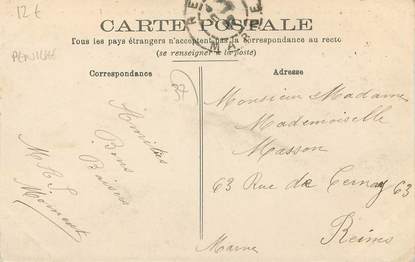 12 €
PENICHE
CARTE POSTALE
Tous les pays étrangers n'acceptent pas la correspondance au recto
(se renseigner à la poste)
REI
MARNE
Correspondance
37
Amitiés
Bons
Baisers
M
Adresse
Monsieur Madame
Mademoiselle
Masson
63 Rue de Cernay 63
Reims
Marne